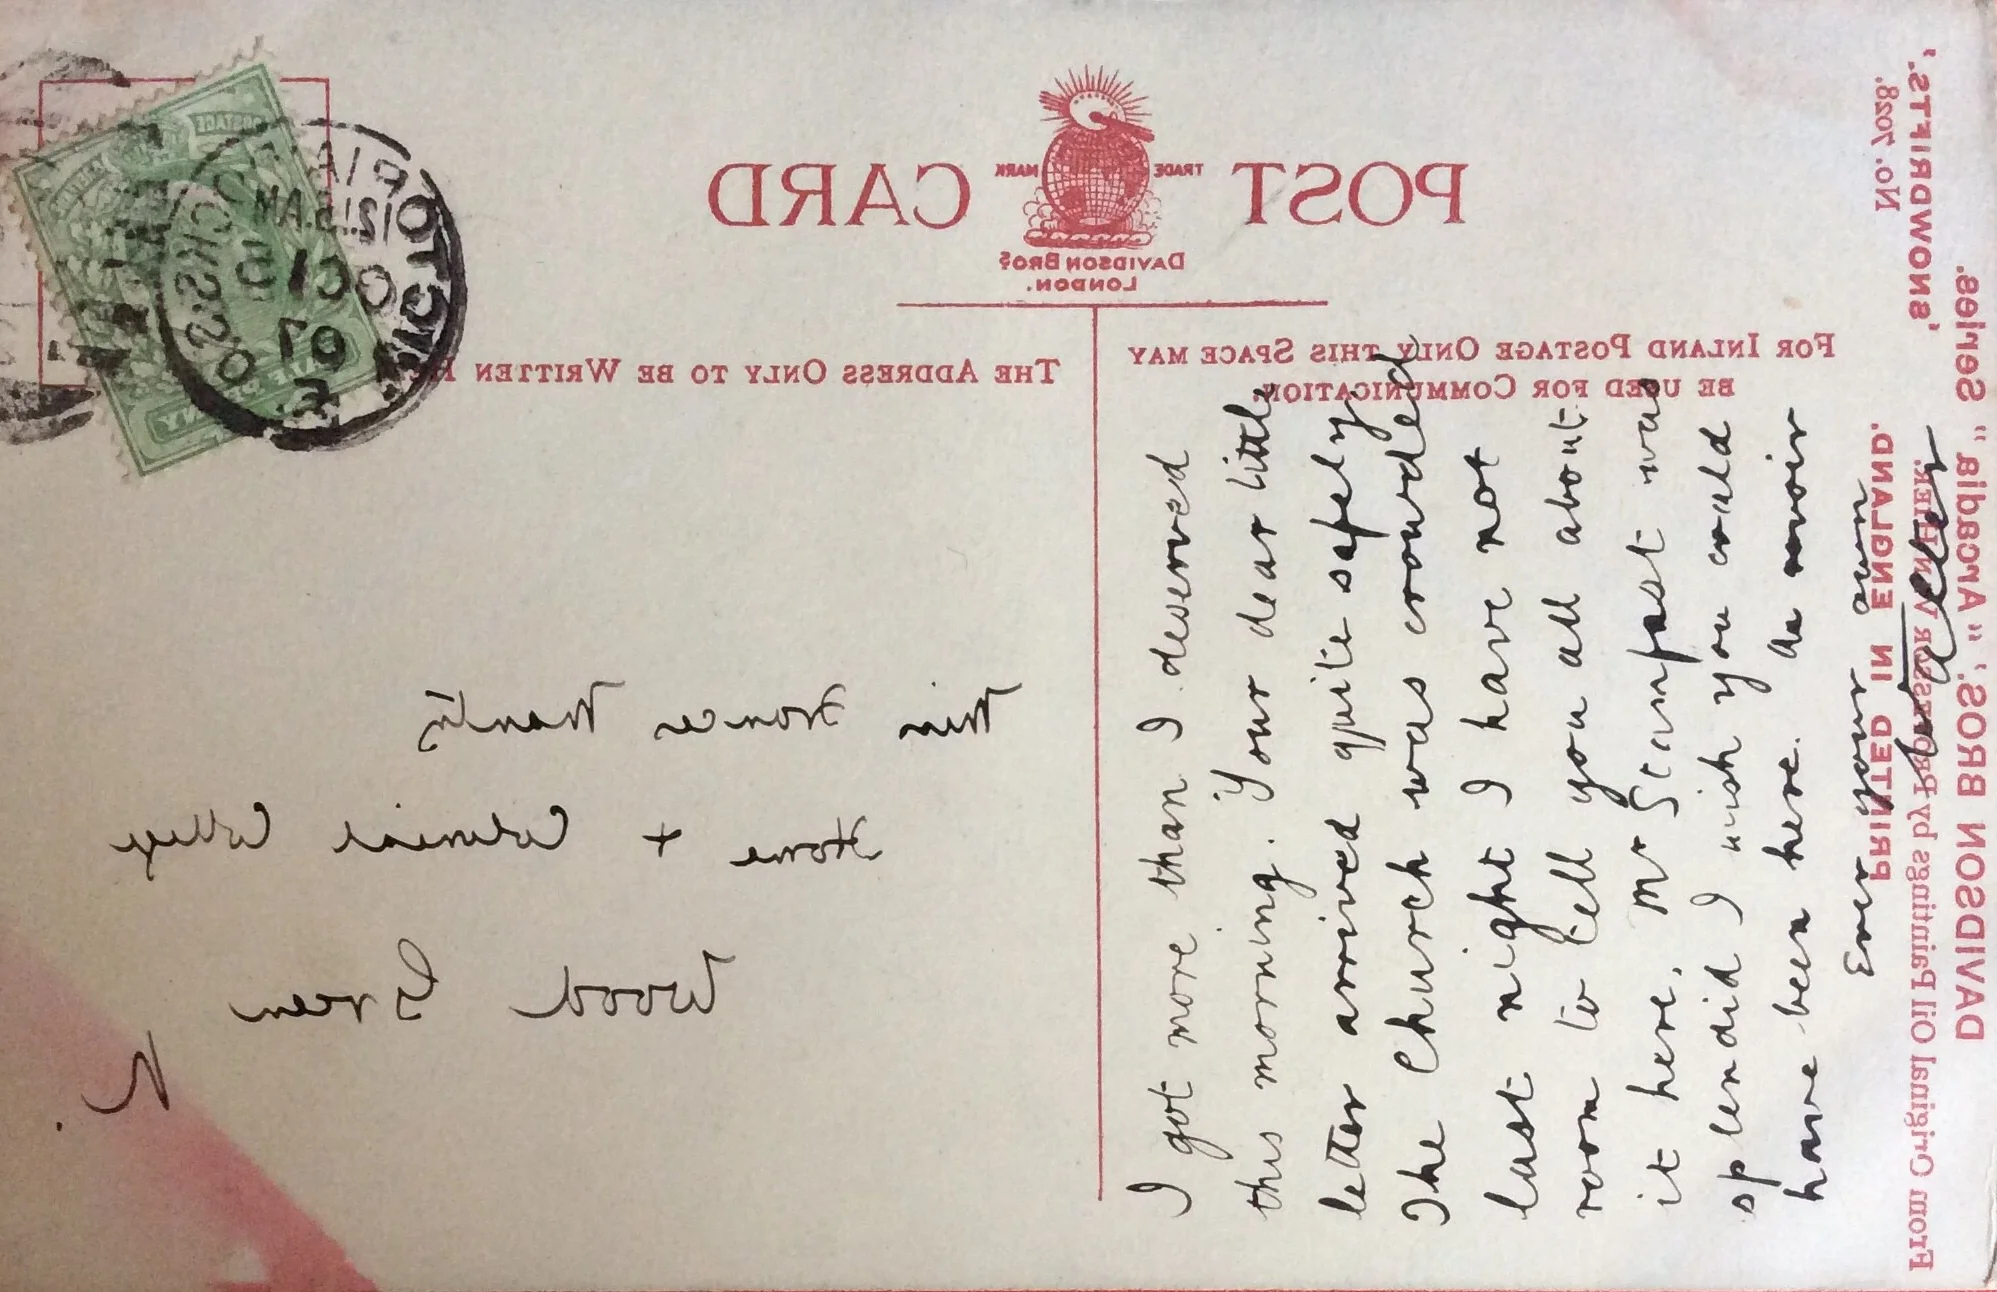 POST CARD
TRADE MARK
DAVIDSON BROS.
LONDON.
FOR INLAND POSTAGE ONLY THIS SPACE MAY
BE USED FOR COMMUNICATION.
THE ADDRESS ONLY TO BE WRITTEN
I got more than I deserved
this morning. Your dear little
letter arrived quite safely
The Church was crowded
last night I have not
room to tell you all about
it here. Mr Stempast was
splendid I wish you could
have been here. Au revoir
Ever your own
Miss Frances
Home + Colonial College
Wood Green
N.
POSTAGE
12.15 AM
OC 15
07
No. 7028.
'SNOWDRIFTS.'
DAVIDSON BROS.' "Arcadia" Series.
From Original Oil Paintings by PROFESSOR
PRINTED IN ENGLAND.